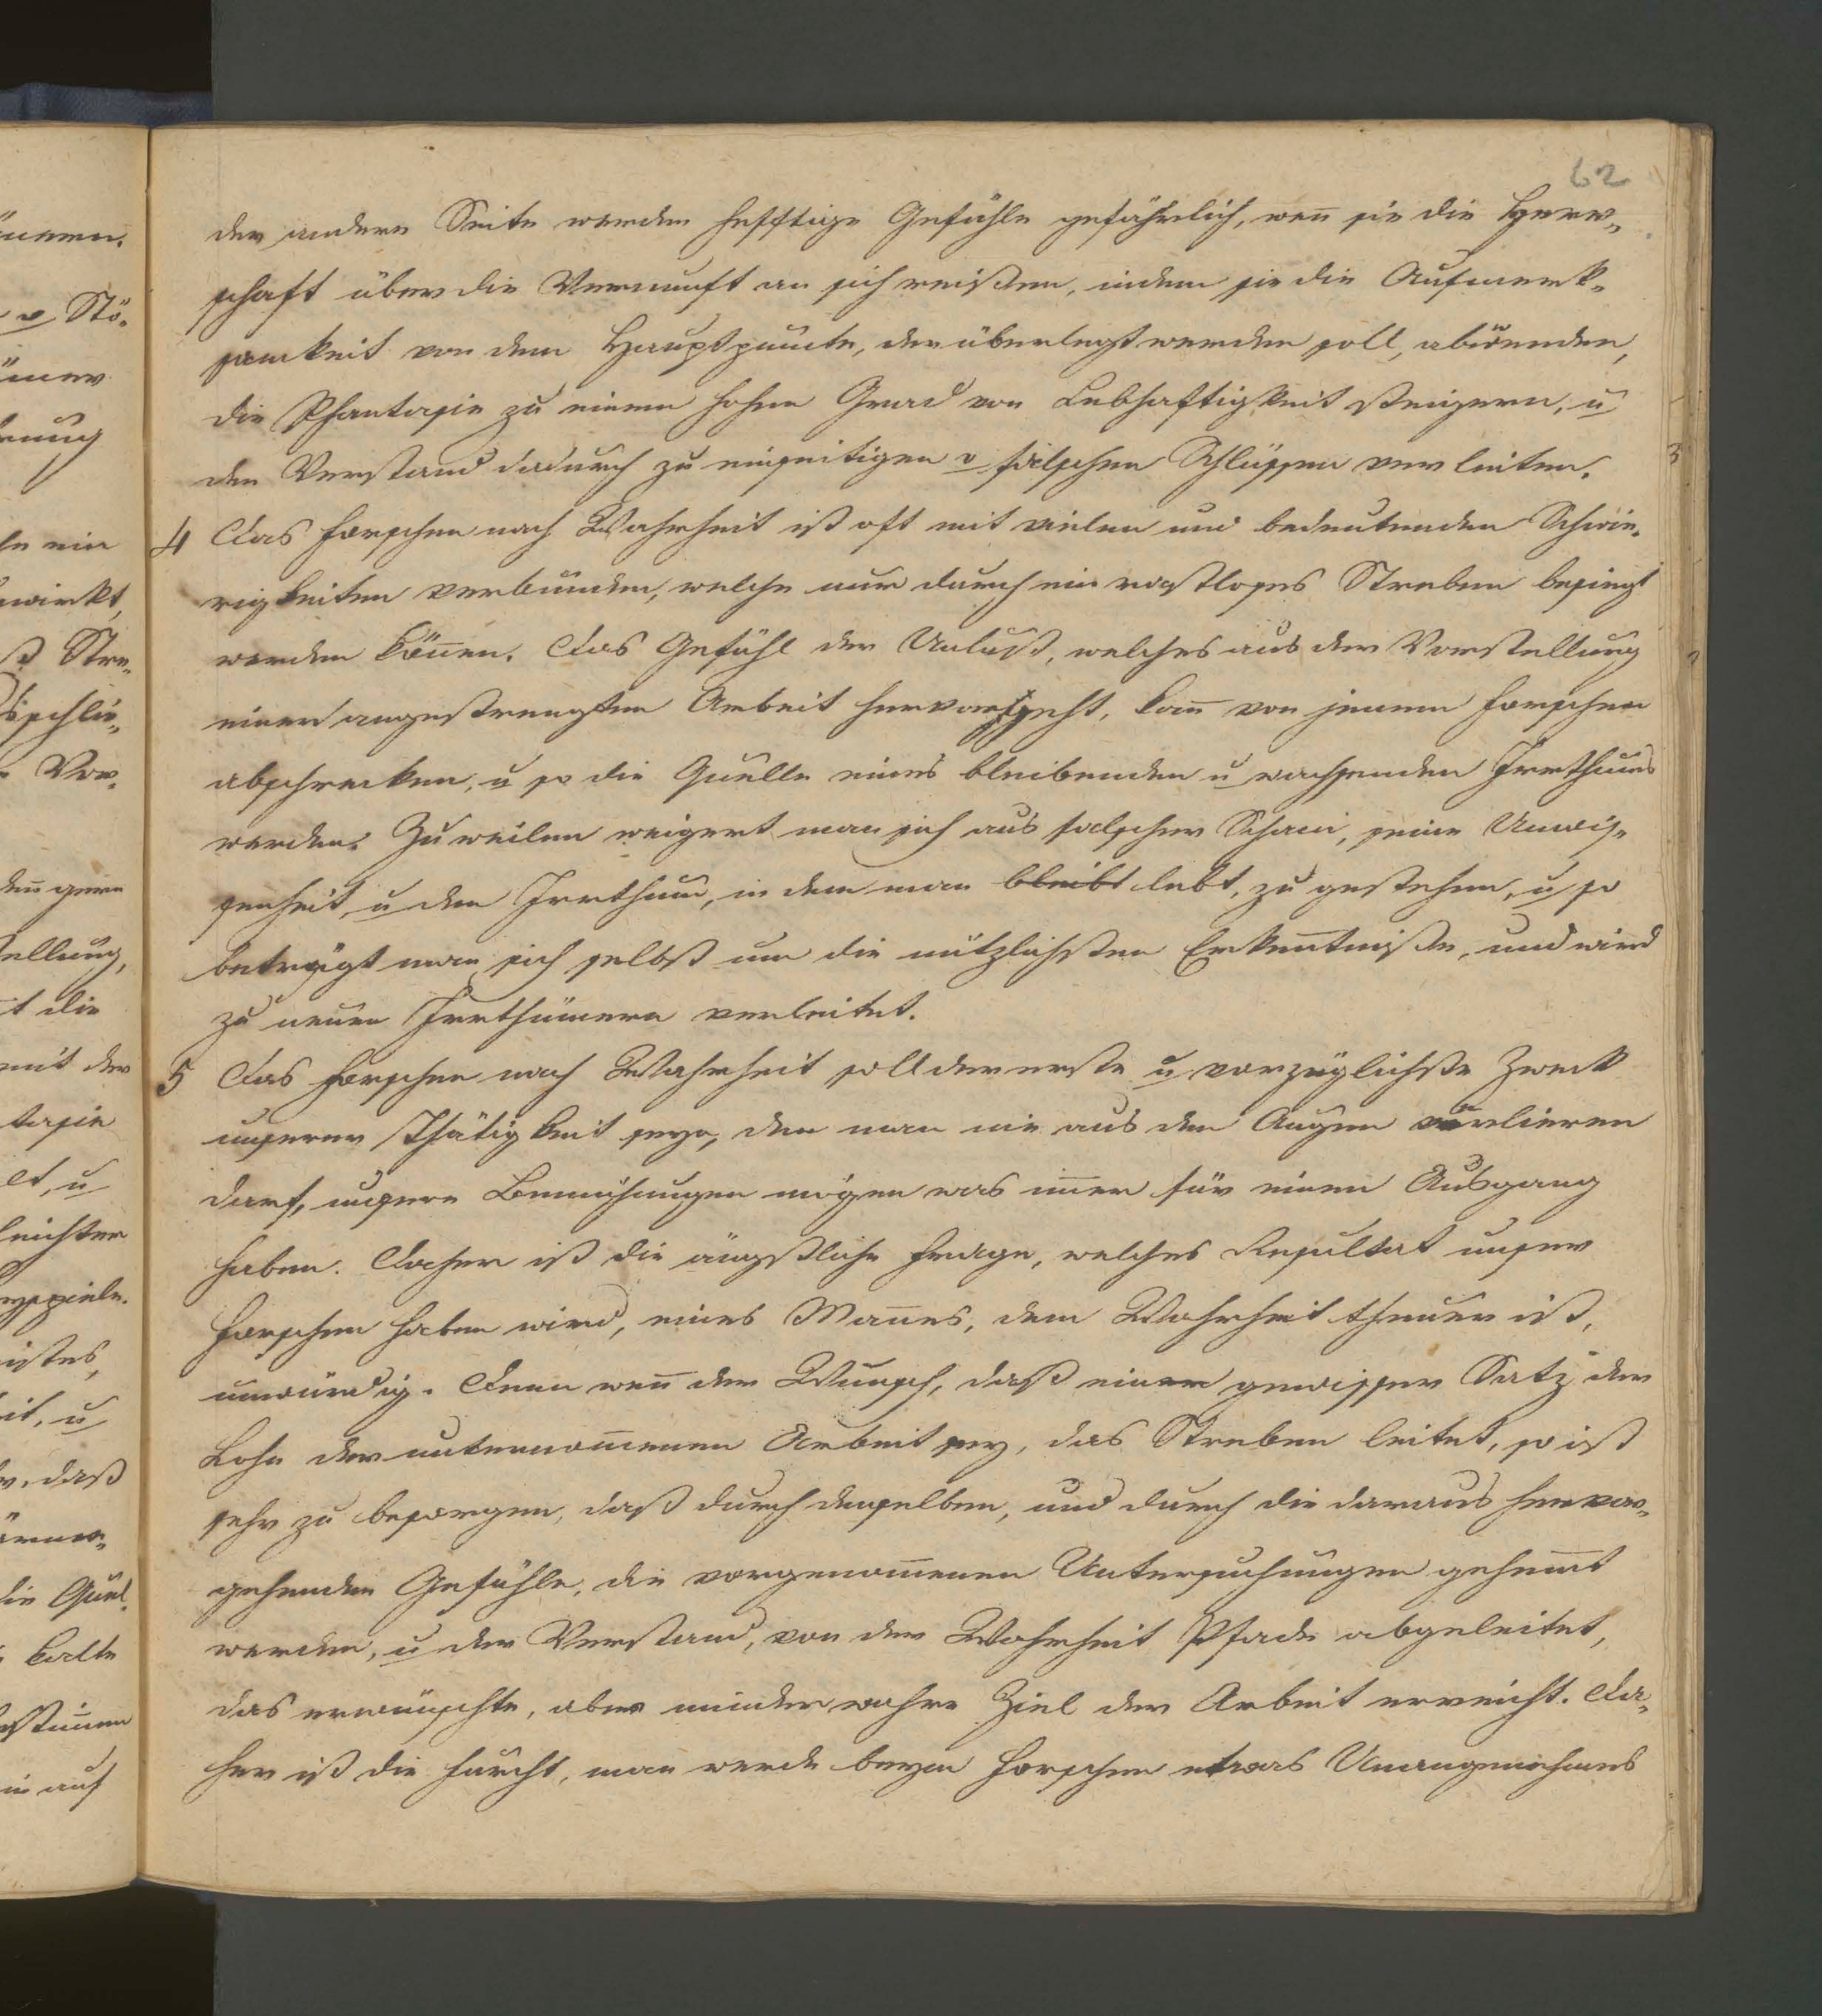 62
der andern Seite werden hefftige Gefühle gefährlich, weñ sie die Herr„
schaft über die Vernunft an sich reißen, indem sie die Aufmerk„
samkeit von dem Hauptpuncte, der überlegt werden soll, abwenden,
die Phantasie zu einem hohen Grad von Lebhaftigkeit steigern, u
den Verstand dadurch zu einseitigen u falschen Schlüssen verleiten.
4 Das Forschen nach Wahrheit ist oft mit vielen und bedeutenden Schwie„
rigkeiten verbunden, welche nur durch ein rastloses Streben besiegt
werden köñen. Das Gefühl der Unlust, welches aus der Vorstellung
einer angestrengten Arbeit hervorgeht, kañ von jenem Forschen
abschrecken, u so die Quelle eines bleibenden u wachsenden Irrthums
werden. Zuweilen weigert man sich aus falscher Scham, seine Unwis„
senheit, u den Irrthum, in dem man bleibt lebt, zu gestehen, u so
betrügt man sich selbst um die nützlichsten Erkentniße, und wird
zu neuen Irrthümern verleitet.
5 Das Forschen nach Wahrheit soll der erste u vorzüglichste Zweck
unserer Thätigkeit seyn, den man nie aus den Augen verlieren
darf, unsere Bemühungen mögen was im̃er für einen Ausgang
haben. Daher ist die ängstliche Frage, welches Resultat unser
Forschen haben wird, eines Mañes, dem Wahrheit theuer ist,
unwürdig. Denn weñ der Wunsch, daß einer gewisser Satz der
Lohn der unternom̃enen Arbeit sey, das Streben leitet, so ist
sehr zu besorgen, daß durch denselben, und durch die daraus hervor„
gehenden Gefühle, die vorgenom̃enen Untersuchungen gehem̃t
werden, u der Verstand, von der Wahrheit Pfade abgeleitet,
das erwünschte, aber minder wahre Ziel der Arbeit erreicht. Da„
her ist die Furcht, man werde beym Forschen etwas Unangenehmes